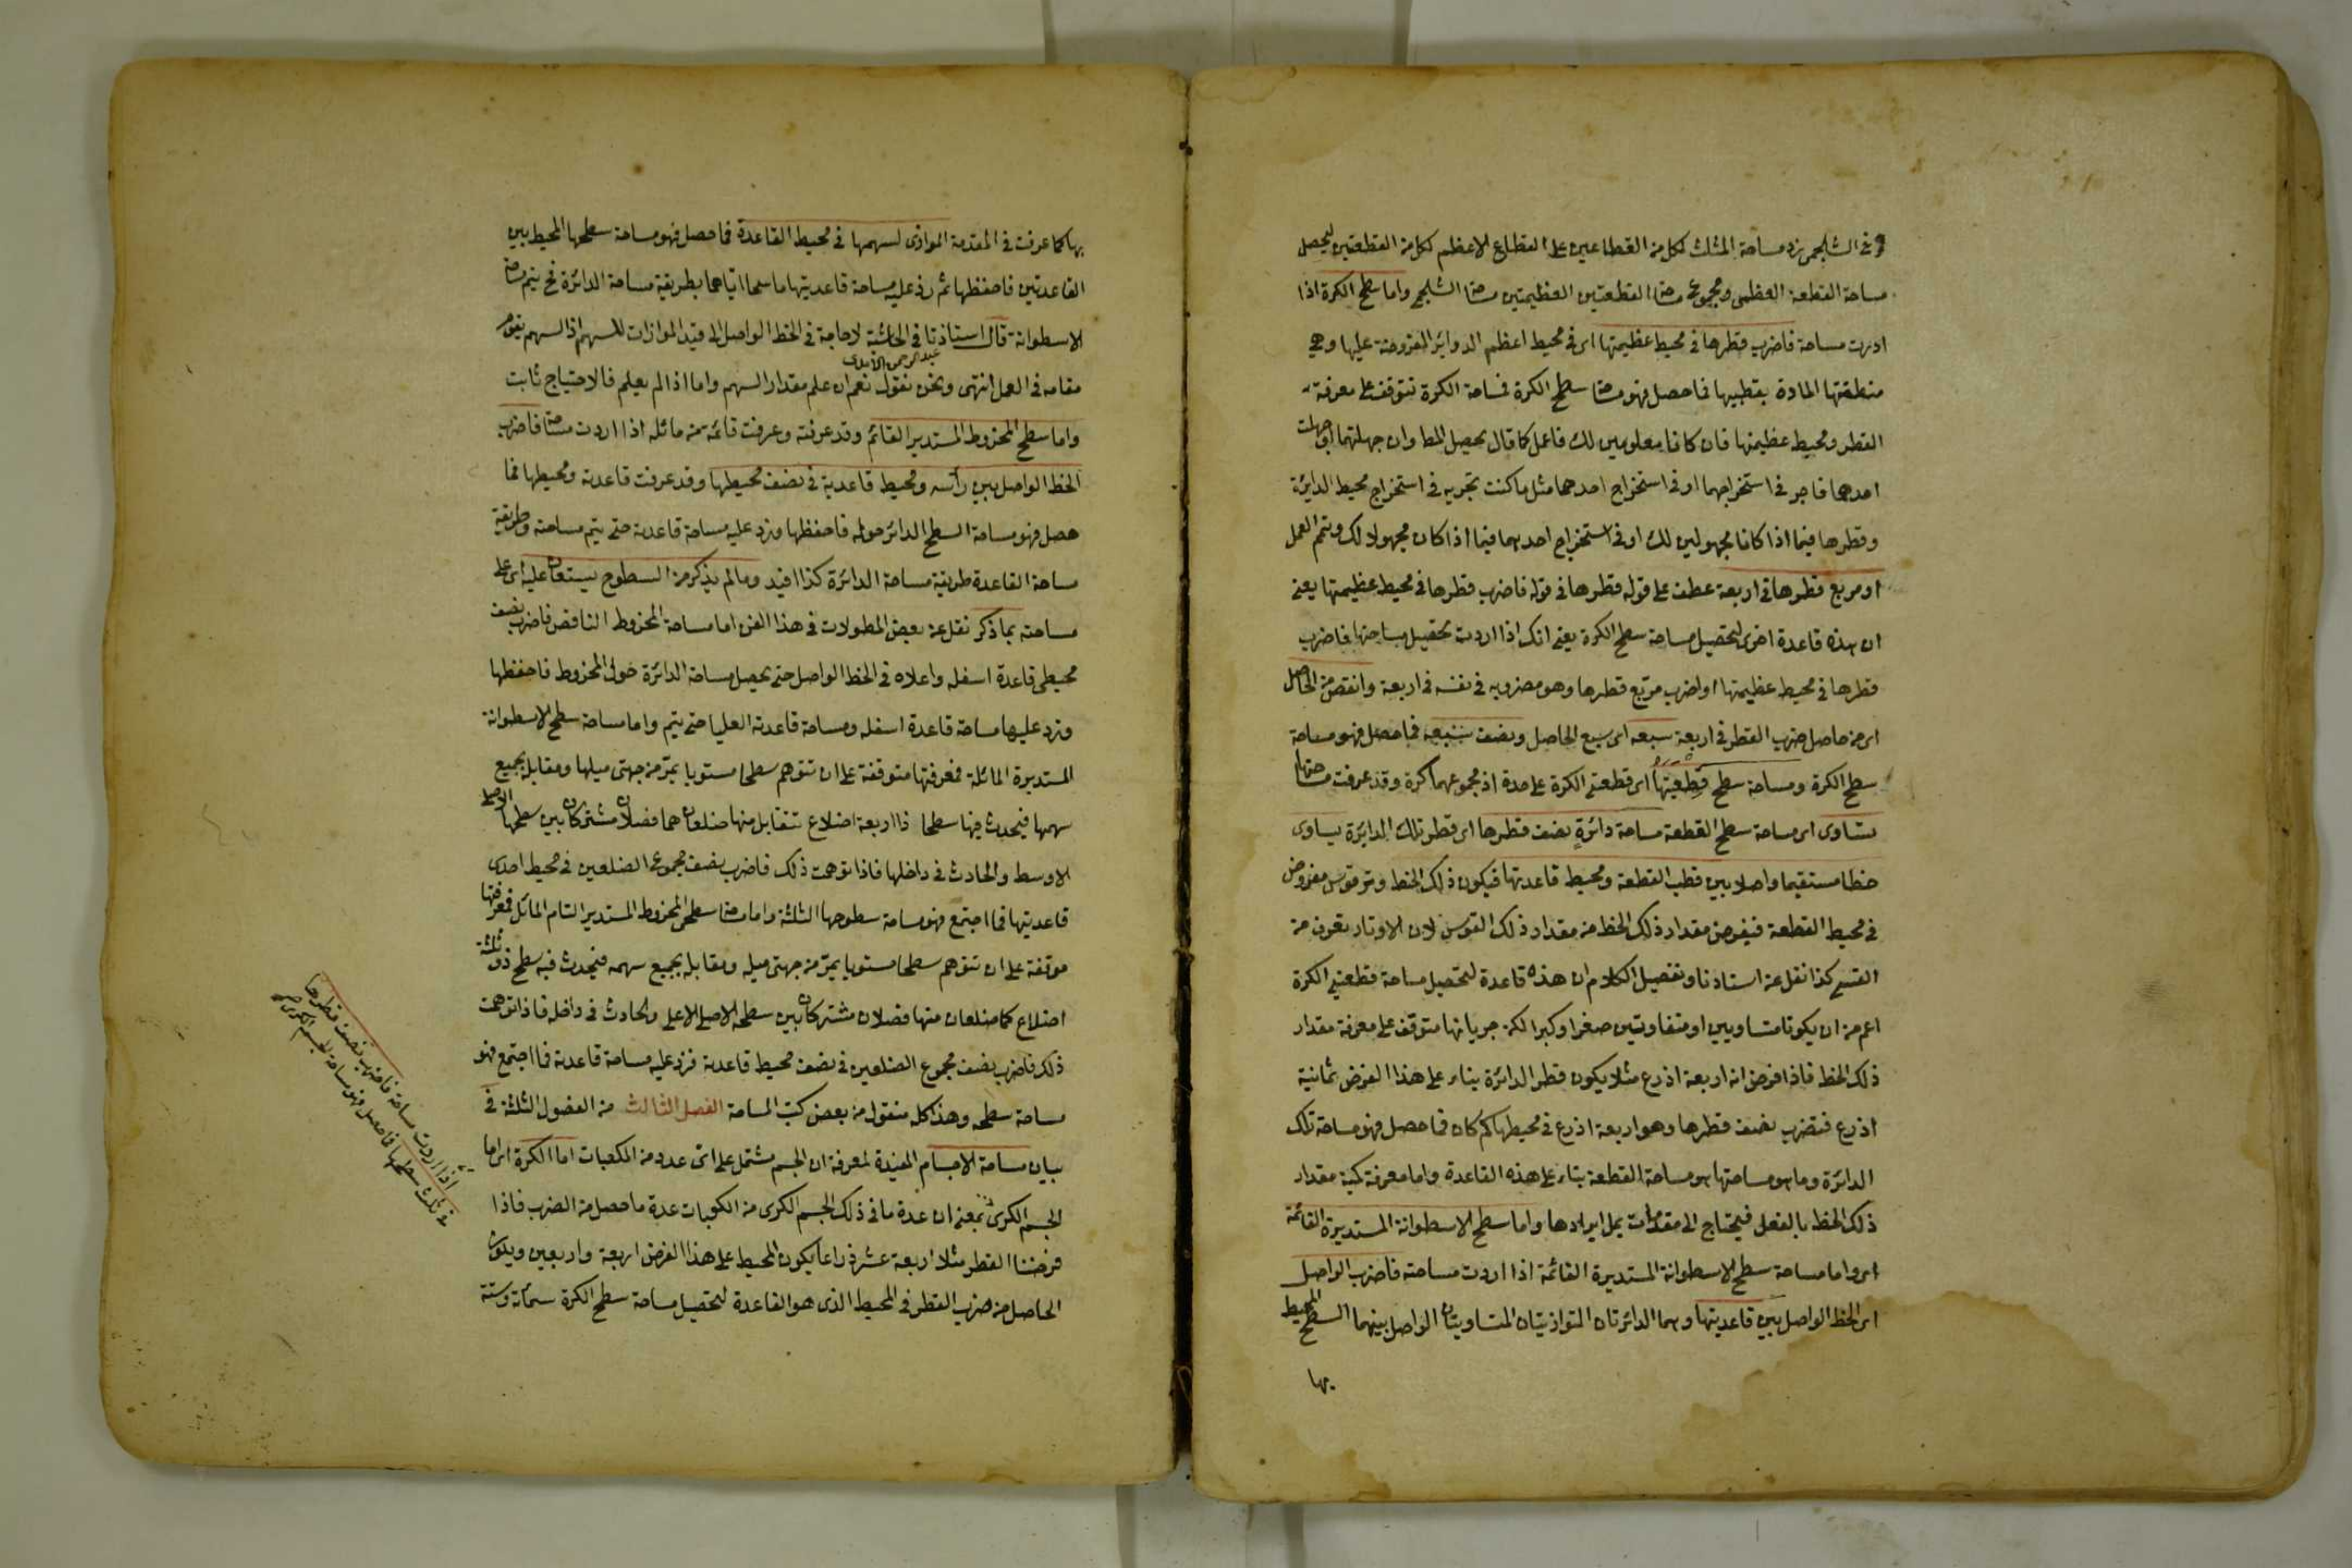 وفى الشلجمى زد مساحة المثلث لكل من القطاعين على القطاع الاعظم لكل من القطعتين ليحصل
مساحة القطعة العظمى ومجموع مسا القطعتين العظيمتين مسا الشلجمى واما سطح الكرة اذا
اردت مساحة فاضرب قطرها فى محيط عظيمتها اى فى محيط اعظم الدوائر المفروضة عليها وهى
منطقتها المارة بقطبيها فما حصل فهو مسا سطح الكرة فمساحة الكرة تتوقف على معرفة
القطر ومحيط عظيمتها فان كانا معلومين لك فاعمل كما قال يحصل المط وان جهلتهما او جهلت
احدهما فاجر فى استخراجهما او فى استخراج احدهما مثل ما كنت تجريه فى استخراج محيط الدايرة
وقطرها فيما اذا كانا مجهولين لك او فى استخراج احدهما فيما اذا كان مجهولا لك وتم العمل
او مربع قطرها فى اربعة عطف على قوله قطرها فى قوله فاضرب قطرها فى محيط عظيمتها يعنى
ان هذه قاعدة اخرى لتحصيل مساحة سطح الكرة يعنى انك اذا اردت تحصيل مساحتها فاضرب
قطرها فى محيط عظيمتها او اضرب مربع قطرها وهو مضروبه فى نفسه فى اربعة وانقص من الحاصل
اى من حاصل ضرب القطر فى اربعة سبعه اى سبع الحاصل ونصف سبعه فما حصل فهو مساحة
سطح الكرة ومساحة سطح قطعتها اى قطعتى الكرة على حدة اذ مجموعهما كرة وقد عرفت مساحتها
تساوى اى مساحة سطح القطعة مساحة دائرة نصف قطرها اى قطر تلك الدايرة يساوى
خطا مستقيما واصلا بين قطب القطعة ومحيط قاعدتها فيكون ذلك الخط وتر قوس مفروض
فى محيط القطعة فيفرض مقدار ذلك الخط من مقدار ذلك القوس لان الاوتار تعرف من
القسى كذا نقل عن استادنا وتفصيل الكلام ان هذه قاعدة لتحصيل مساحة قطعتى الكرة
اعم من ان يكونا متساويين او متفاوتين صغرا وكبرا لكن جريانها متوقف على معرفة مقدار
ذلك الخط فاذا فرض انه اربعة اذرع مثلا يكون قطر الدائرة بناء على هذا الفرض ثمانية
اذرع فتضرب نصف قطرها وهو اربعة اذرع فى محيطها كم كان فما حصل فهو مساحة تلك
الدائرة وما هو مساحتها هو مساحة القطعة بناء على هذه القاعدة واما معرفة كمية مقدار
ذلك الخط بالفعل فيحتاج الى مقدمات يمل ايرادها واما سطح الاسطوانة المستديرة القائمة
اى واما مساحة سطح الاسطوانة المستديرة القائمة اذا اردت مساحته فاضرب الواصل
اى الخط الواصل بين قاعدتيها وهما الدائرتان المتوازيتان المتساويتان الواصل بينهما السطح المحيط
بها
بها كما عرفت فى المقدمة الموازى لسهمها فى محيط القاعدة فما حصل فهو مساحة سطحها المحيط بين
القاعدتين فاحفظها ثم زد عليه مساحة قاعدتيها ماسحا اياهما بطريقة مساحة الدائرة فح يتم مساحة
الاسطوانة قال استاذنا فى الحاشية لا حاجة فى الخط الواصل الى قيد الموازات للسهم اذ السهم يقوم
عبد الرحمن الآمدى
مقامه فى العمل انتهى ونحن نقول نعم ان علم مقدار السهم واما اذا لم يعلم فالاحتياج ثابت
واما سطح المخروط المستدير القائم وقد عرفته وعرفت قائمه من مائله اذا اردت مساحة فاضرب
الخط الواصل بين رأسه ومحيط قاعدته فى نصف محيطها وقد عرفت قاعدته ومحيطها فما
حصل فهو مساحة السطح الدائر حوله فاحفظها وزد عليه مساحة قاعدته حتى يتم مساحته وطريقة
مساحة القاعدة طريقة مساحة الدائرة كذا افيد وما لم يذكر من السطوح يستعان عليه اى على
مساحته بما ذكر نقل عن بعض المطولات فى هذا الفن اما مساحة المخروط الناقص فاضرب نصف
محيطى قاعدة اسفله واعلاه فى الخط الواصل حتى يحصل مساحة الدائرة حول المخروط فاحفظها
وزد عليها مساحة قاعدة اسفله ومساحة قاعدته العليا حتى يتم واما مساحة سطح الاسطوانة
المستديرة المائلة فمعرفتها متوقفة على ان تتوهم سطحا مستويا يمر من جهتى ميلها ومقابله بجميع
سهمها فيحدث فيها سطحا ذا اربعة اضلاع تتقابل منها ضلعان هما فضلان مشتركان بين سطحها الاصلى
الاوسط والحادث فى داخلها فاذا توهمت ذلك فاضرب نصف مجموع الضلعين فى محيط احدى
قاعدتيها فما اجتمع فهو مساحة سطوحها الثلثة واما مسا سطحى المخروط المستدير التام المائل فمعرفتها
موقفة على ان تتوهم سطحا مستويا يمر من جهتى ميله ومقابله بجميع سهمه فيحدث فيه سطح ذو ثلثة
اضلاع كما ضلعان منها فضلان مشتركان بين سطحه الاصلى الاعلى والحادث فى داخله فاذا توهمت
ذلك فاضرب نصف مجموع الضلعين فى نصف محيط قاعدته فزد عليه مساحة قاعدته فما اجتمع فهو
مساحة سطحه وهذا كله منقول من بعض كتب المساحة الفصل الثالث من الفصول الثلثة فى
بيان مساحة الاجسام المفيدة لمعرفة ان الجسم مشتمل على اى عدد من المكعبات اما الكرة اى اما
الجسم الكرى بمعنى ان عدة ما فى ذلك الجسم الكرى من الكعبات عدة ما حصل من الضرب فاذا
فرضنا القطر مثلا اربعة عشر ذراعا يكون المحيط على هذا الفرض اربعة واربعين ويكون
الحاصل من ضرب القطر فى المحيط الذى هو القاعدة لتحصيل مساحة سطح الكرة ستمائة وستة
اذا اردت مساحة فاضرب نصف قطرها
فى ثلث سطحها فما حصل فهو مساحة الجسم الكرى